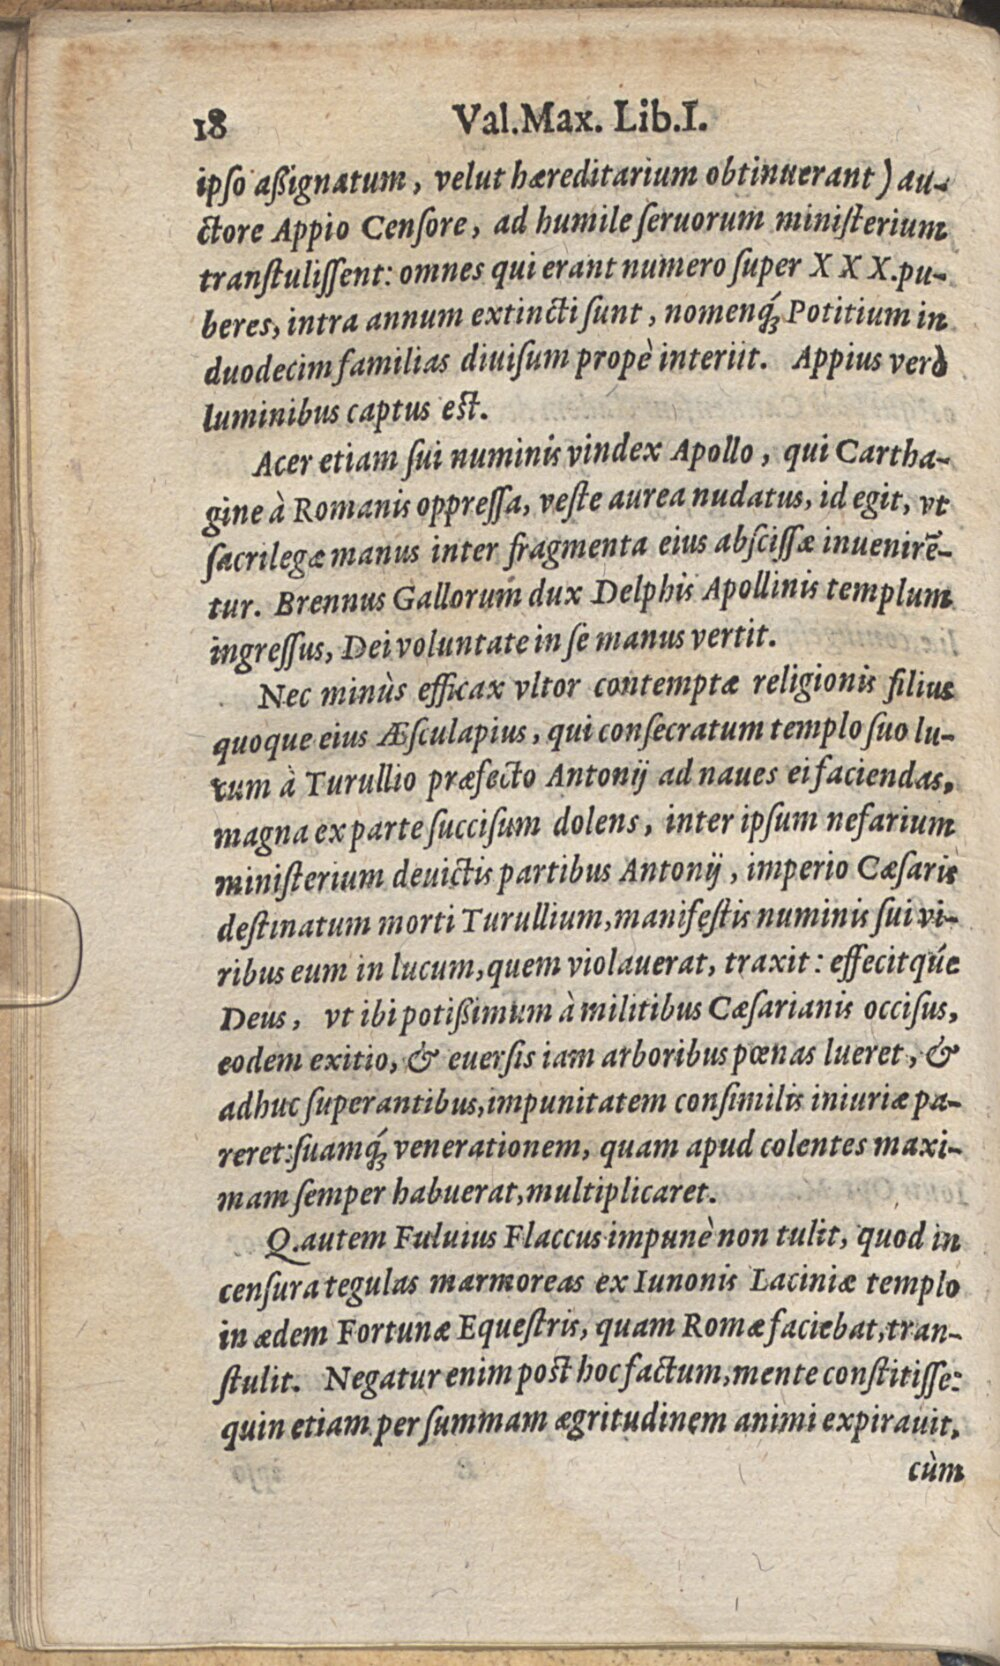 18 Val.Max. Lib.I.
ipſo aßignatum, velut hæreditarium obtinuerant) au-
ctore Appio Cenſore, ad humile ſeruorum miniſterium
tranſtuliſſent: omnes qui erant numero ſuper XXX.pu-
beres, intra annum extincti ſunt, nomenq́ꝫ Potitium in
duodecim familias diuiſum propè interiit. Appius verò
luminibus captus eſt.
Acer etiam ſui numinis vindex Apollo, qui Cartha-
gine à Romanis oppreſſa, veſte aurea nudatus, id egit, vt
ſacrilegæ manus inter fragmenta eius abſciſſæ inuenirẽ-
tur. Brennus Gallorum dux Delphis Apollinis templum
ingreſſus, Dei voluntate in ſe manus vertit.
Nec minùs efficax vltor contemptæ religionis filius
quoque eius Æſculapius, qui conſecratum templo ſuo lu-
cum à Turullio præfecto Antonij ad naues ei faciendas,
magna ex parte ſucciſum dolens, inter ipſum nefarium
miniſterium deuictis partibus Antonij, imperio Cæſaris
deſtinatum morti Turullium, manifeſtis numinis ſui vi-
ribus eum in lucum, quem violauerat, traxit: effecitq́ue
Deus, vt ibi potißimum à militibus Cæſarianis occiſus,
eodem exitio, & euerſis iam arboribus pœnas lueret, &
adhuc ſuperantibus, impunitatem conſimilis iniuriæ pa-
reret: ſuamq́ꝫ venerationem, quam apud colentes maxi-
mam ſemper habuerat, multiplicaret.
Q. autem Fuluius Flaccus impunè non tulit, quod in
cenſura tegulas marmoreas ex Iunonis Laciniæ templo
in ædem Fortunæ Equeſtris, quam Romæ faciebat, tran-
ſtulit. Negatur enim poſt hoc factum, mente conſtitiſſe:
quin etiam per ſummam ægritudinem animi expirauit,
cùm